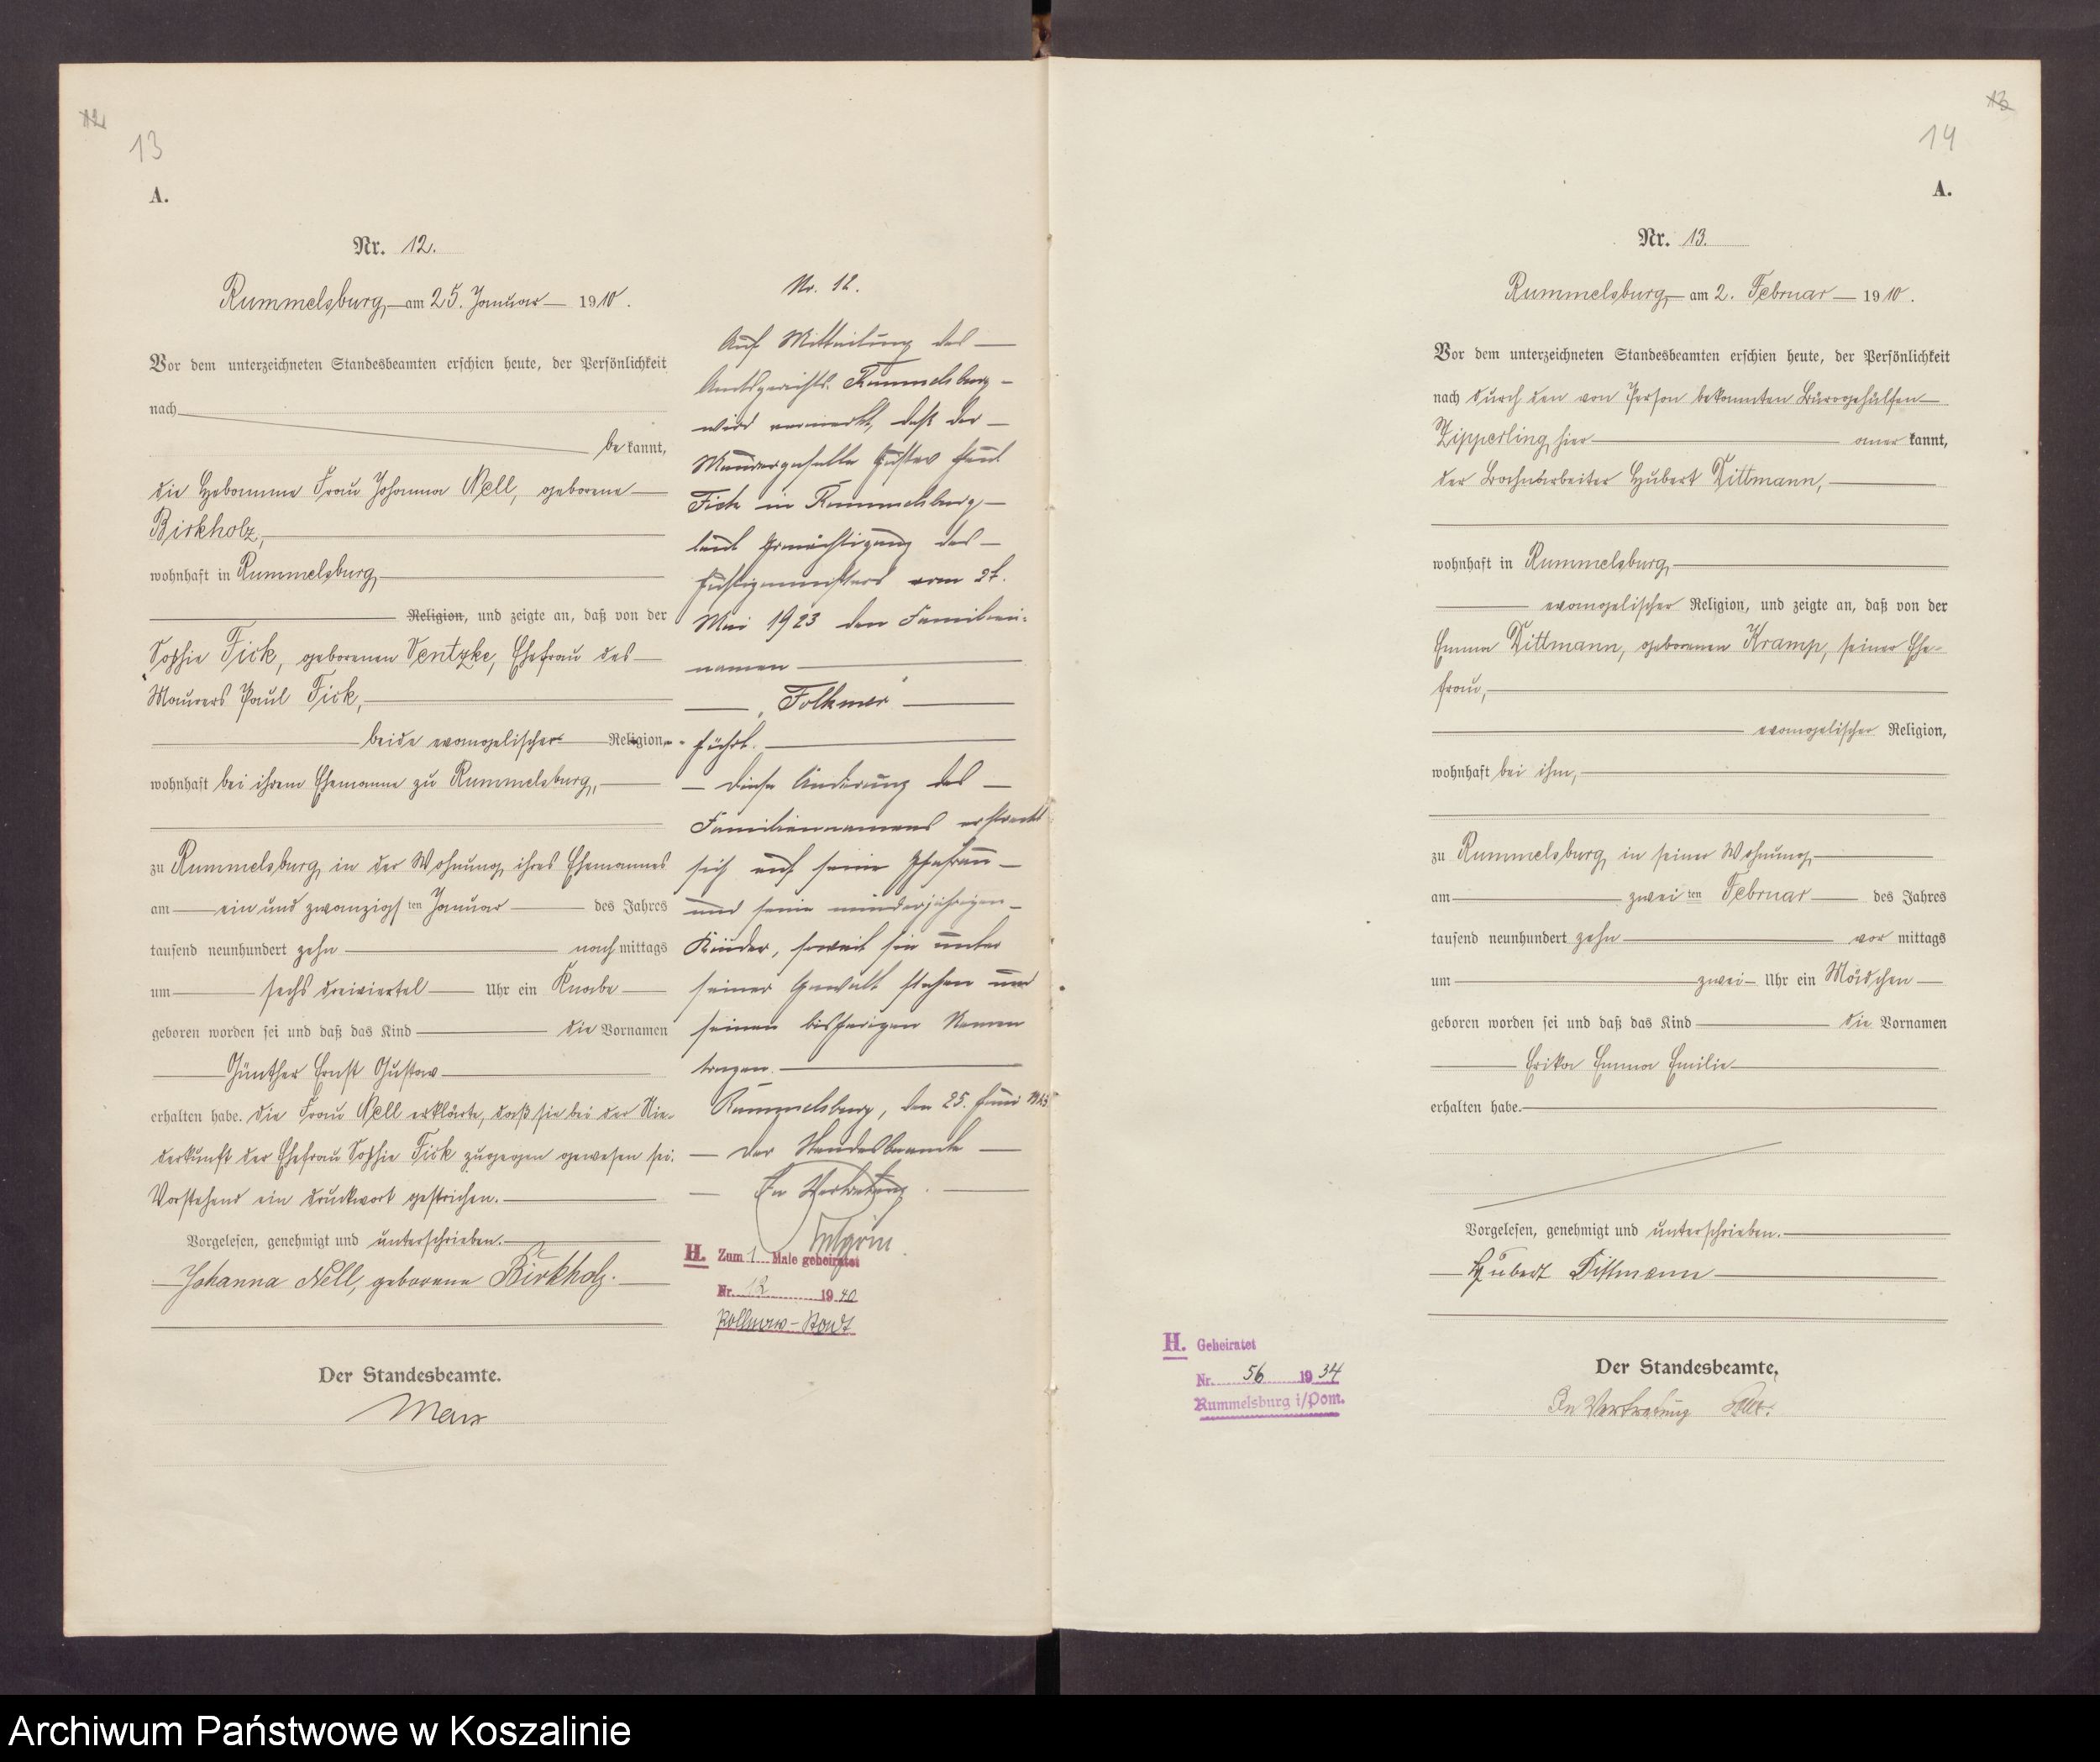 12
13
A.
Nr. 12.
Rummelsburg, am 25. Januar 1910.
Vor dem unterzeichneten Standesbeamten erschien heute, der Persönlichkeit
nach
be kannt,
die Hebamme Frau Johanna Nell, geborene
Birkholz,
wohnhaft in Rummelsburg,
Religion, und zeigte an, daß von der
Sophie Fick, geborenen Ventzke, Ehefrau des
Maurers Paul Fick,
beide evangelischer Religion,
wohnhaft bei ihrem Ehemanne zu Rummelsburg,
zu Rummelsburg, in der Wohnung ihres Ehemannes
am ein und zwanzigsten Januar des Jahres
tausend neunhundert zehn nachmittags
um sechs dreiviertel Uhr ein Knabe
geboren worden sei und daß das Kind die Vornamen
Günther Ernst Gustav
erhalten habe. Die Frau Nell erklärte, daß sie bei der Nie-
derkunft der Ehefrau Sophie Fick zugegen gewesen sei.
Vorstehend ein Druckwort gestrichen.
Vorgelesen, genehmigt und unterschrieben.
Johanna Nell, geborene Birkholz.
Der Standesbeamte.
Nr. 12.
Auf Mitteilung des
Amtsgerichts Rummelsburg
wird vermerkt, daß der
Maurergeselle Gustav Paul
Fick in Rummelsburg
laut Ermächtigung des
Justizministers vom
Mai 1923 den Familien-
namen
"Folkmer"
führt.
Diese Änderung des
Familiennamens erstreckt
sich auf seine Ehefrau
und seine minderjährigen
Kinder, soweit sie unter
seiner Gewalt stehen und
seinen bisherigen Namen
tragen.
Rummelsburg, den 25. Juni 1923
Der Standesbeamte
In Vertretung.
H. Zum 1 Male geheiratet
Nr. 12 1940
Pollnow-Stadt
13
14
A.
Nr. 13.
Rummelsburg, am 2. Februar 1910.
Vor dem unterzeichneten Standesbeamten erschien heute, der Persönlichkeit
nach durch den von Person bekannten Bürogehülfen
Zipperling hier aner kannt,
der Bahnarbeiter Hubert Dittmann,
wohnhaft in Rummelsburg,
evangelischer Religion, und zeigte an, daß von der
Emma Dittmann, geborenen Kramp, seiner Ehe-
frau,
evangelischer Religion,
wohnhaft bei ihm,
zu Rummelsburg, in seiner Wohnung,
am zwei ten Februar des Jahres
tausend neunhundert zehn vor mittags
um zwei Uhr ein Mädchen
geboren worden sei und daß das Kind die Vornamen
Erika Emma Emilie
erhalten habe.
Vorgelesen, genehmigt und unterschrieben.
Hubert Dittmann
Der Standesbeamte,
In Vertretung
H. Geheiratet
Nr. 56 1934
Rummelsburg i/Pom.
Archiwum Państwowe w Koszalinie